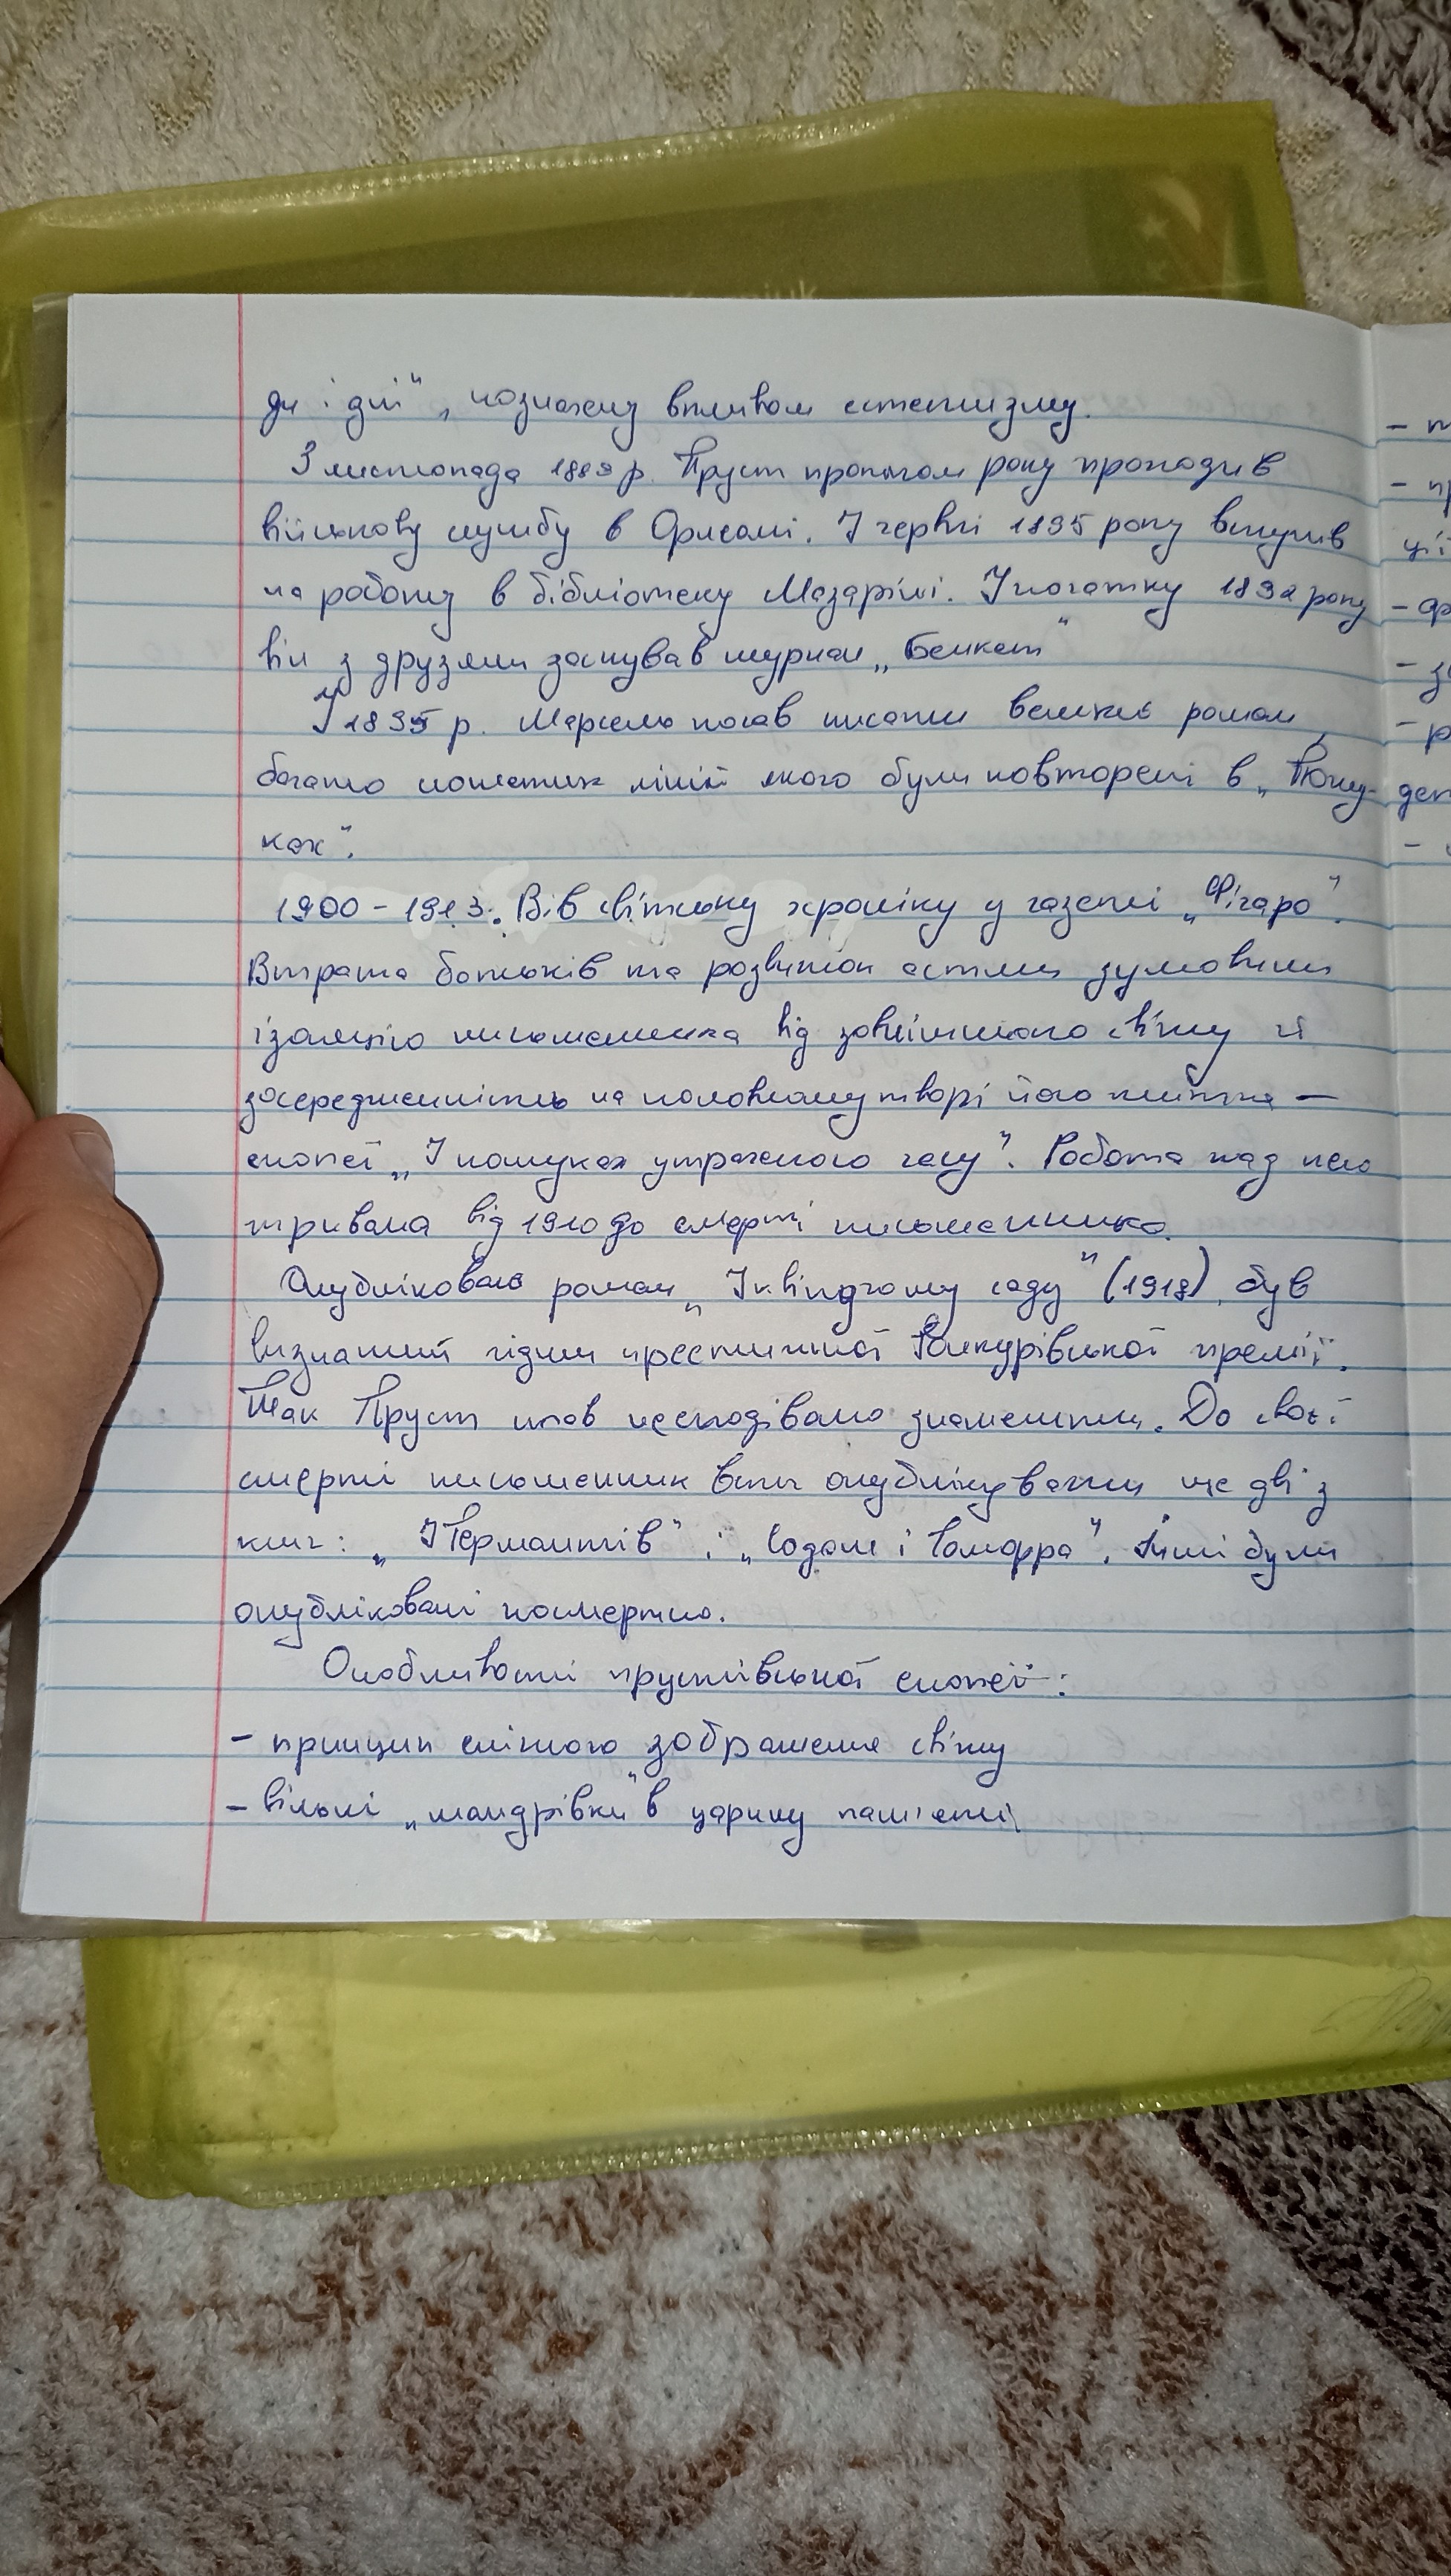 ди і дні", позначену впливом естетизму.
З листопада 1889 р. Пруст протягом року проходив
військову службу в Орлеані. У червні 1895 року вступив
на роботу в бібліотеку Мазаріні. У початку 1892 року
він з друзями заснував журнал „Бенкет"
У 1895 р. Марсель почав писати великий роман,
багато сюжетних ліній якого були повторені в „Пошу-
ках".
1900 – 1913. Вів світську хроніку у газеті „Фігаро".
Втрата батьків та розвиток астми зумовили
ізоляцію письменника від зовнішнього світу й
зосередженність на головному творі його життя —
епопеї „У пошуках утраченого часу". Робота над нею
тривала від 1910 до смерті письменника.
Опубліковано роман „У квіндчому саду" (1918), був
визнаний гідним престижної Гонкурівської премії.
Так Пруст став несподівано знаменитим. До своєї
смерті письменник встиг опублікувати ще дві з
книг: „У Германтів" і „Содом і Гоморра". Інші були
опубліковані посмертно.
Особливості прустівської епопеї:
– принцип емісного зображення світу
– вільні „мандрівки" в царину пам'яті
– п
– пр
ції
– ф
– з
– р
ден
–